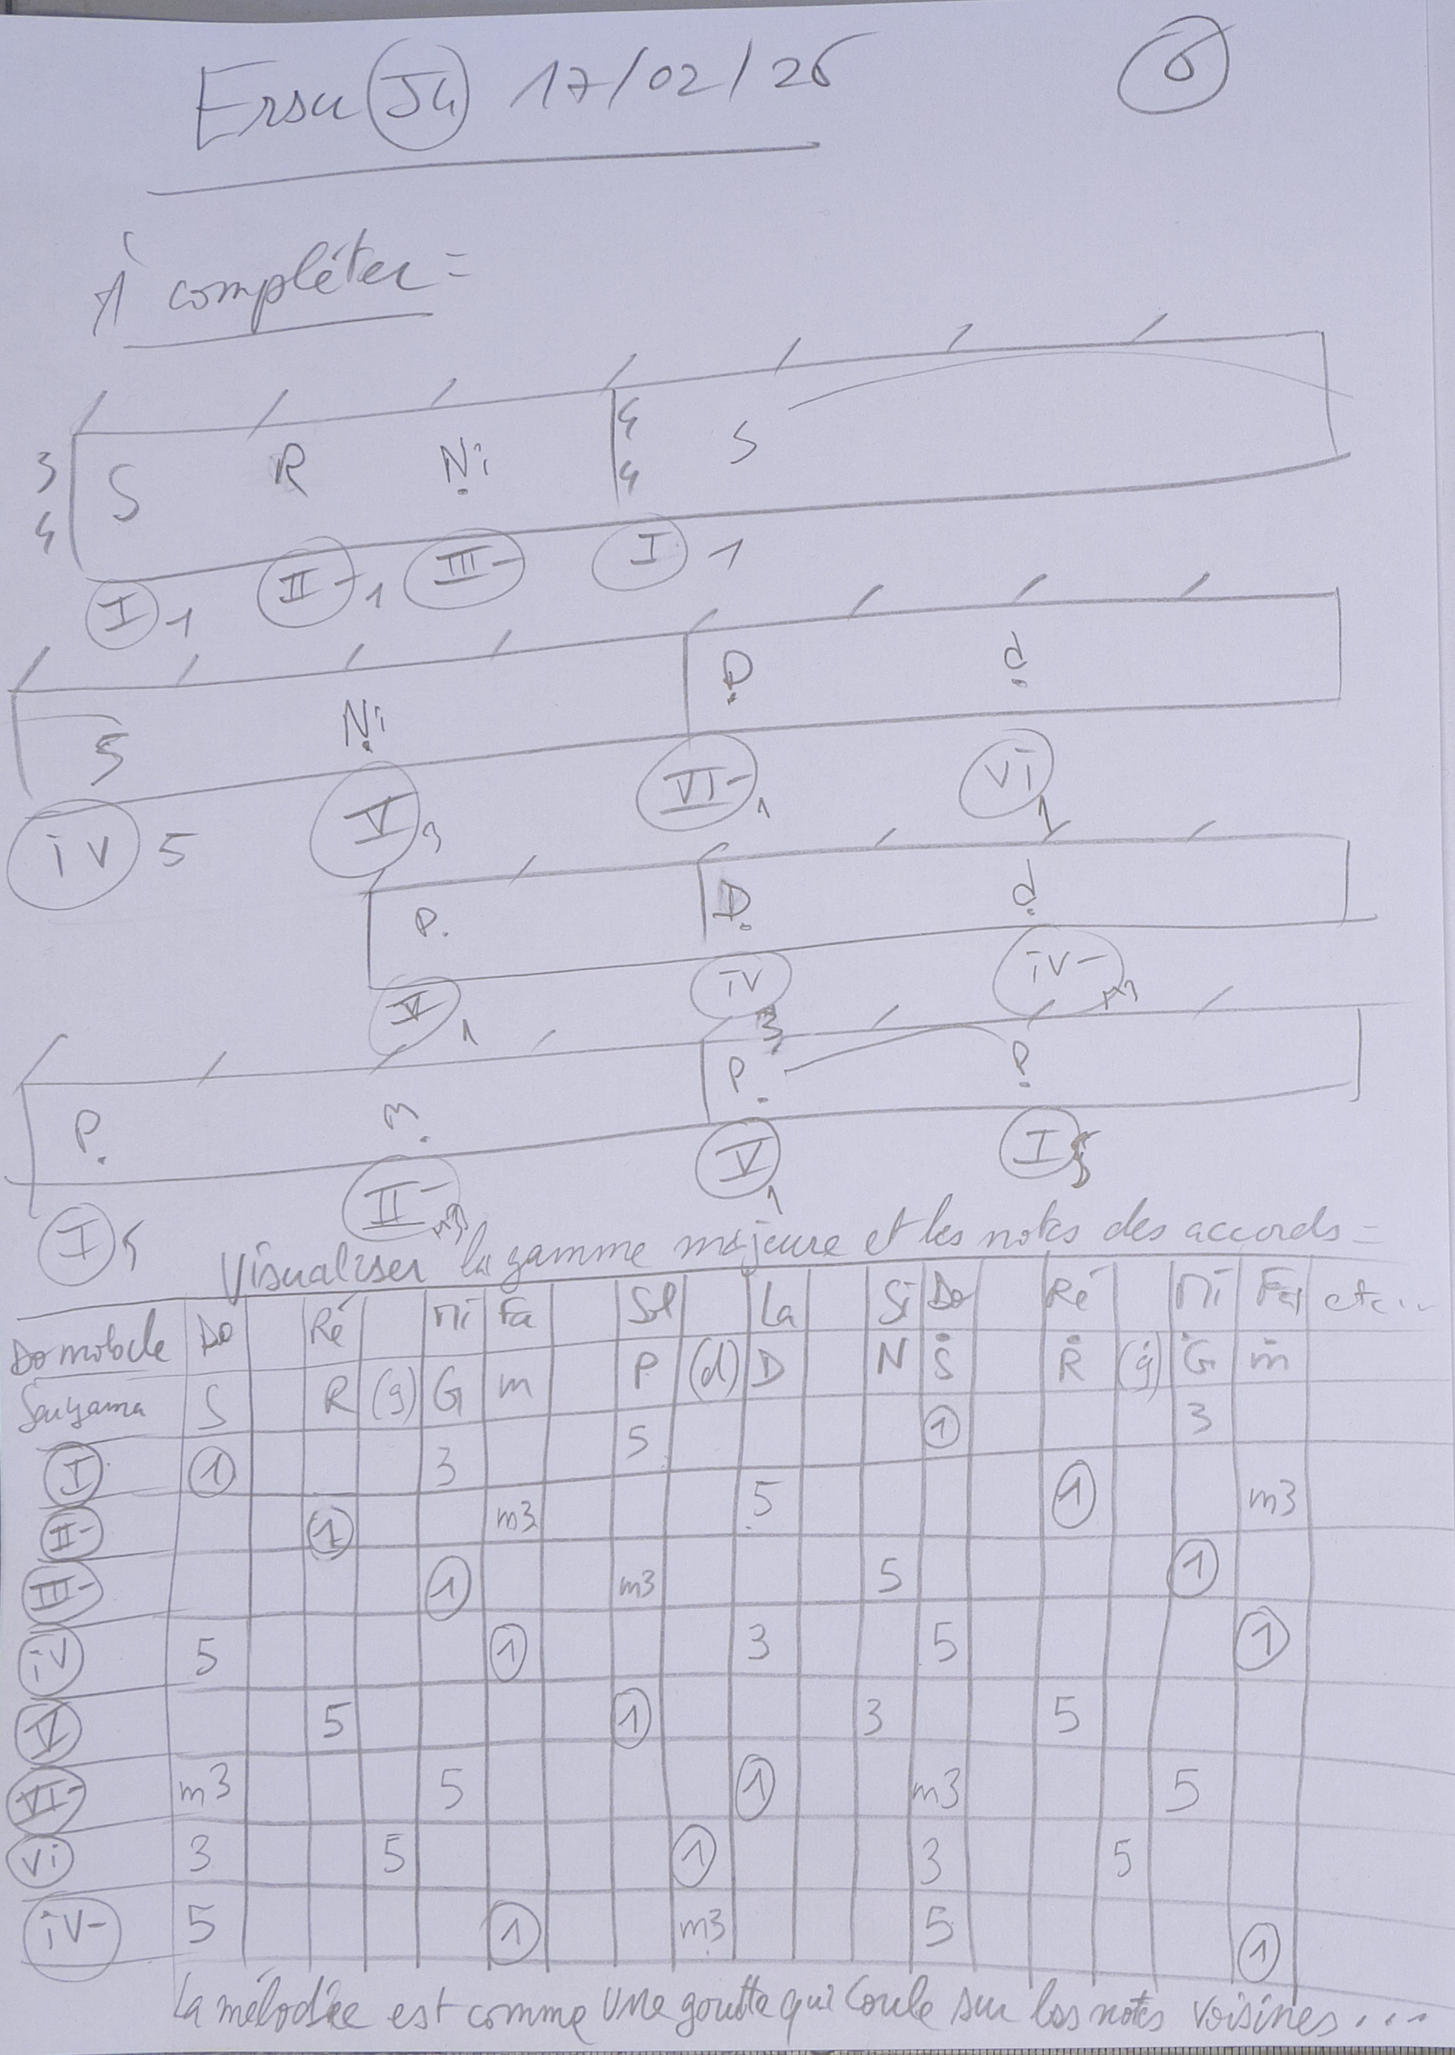 Ersu J4 17/02/26 6
À compléter =
3 4 S R Ṇi 4 4 S
I 1 II-1 III- I 1
S Ṇi Ḍ ḍ
iv 5 V 3 VI-1 vi 1
P. Ḍ ḍ
V 1 iv 3 iv-m3
P. m. P. P.
I 5 II-m3 V 1 I 5
Visualiser la gamme majeure et les notes des accords =
Do mobile Do Ré Mi Fa Sol La Si Do Ré Mi Fa etc...
Sargama S R (g) G m P (d) D N Ṡ Ṙ (ġ) Ġ ṁ
I 1 3 5 1 3
II- 1 m3 5 1 m3
III- 1 m3 5 1
iv 5 1 3 5 1
V 5 1 3 5
VI- m3 5 1 m3 5
vi 3 5 1 3 5
iv- 5 1 m3 5 1
La mélodie est comme une goutte qui coule sur les notes voisines...